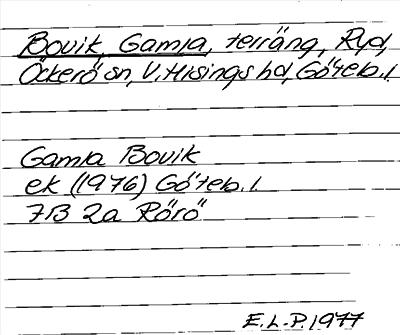 Bovik, Gamla, terräng, Ryd,
Öckerö sn, V. Hisings hd, Göteb. l.
Gamla Bovik
ek (1976) Göteb. l.
7B 2a Rörö
E.L-P. 1977